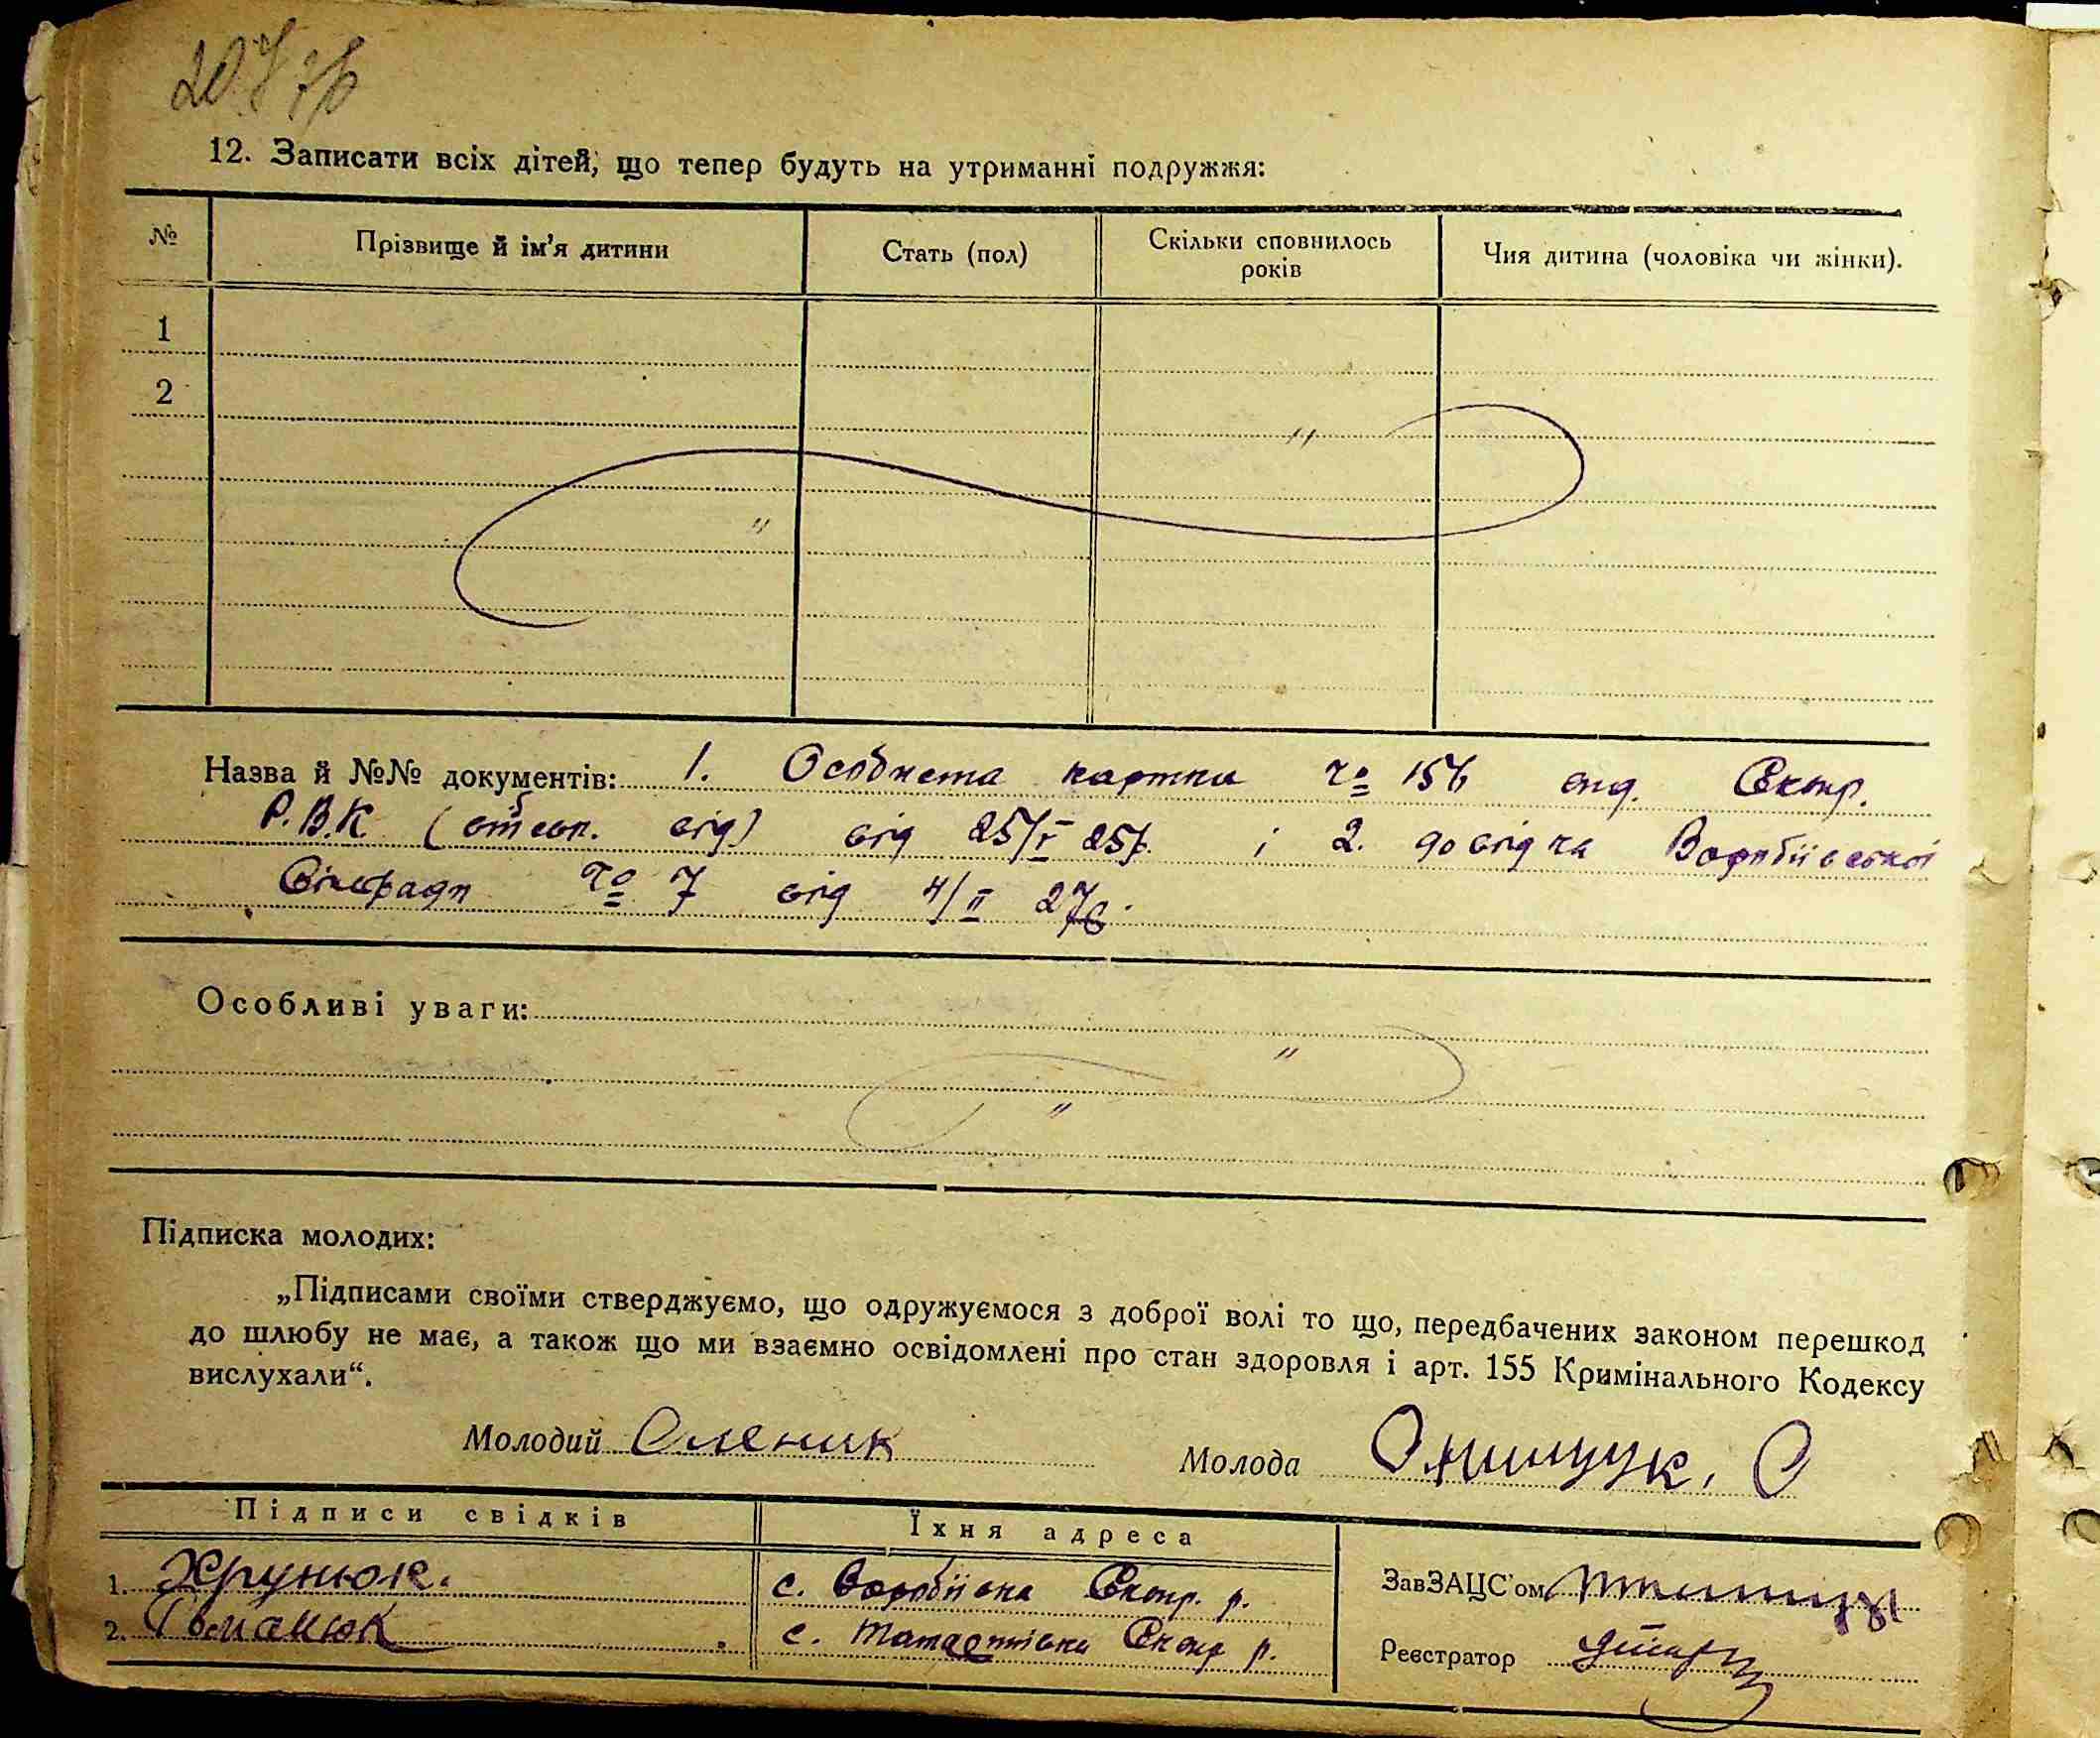 12. Записати всіх дітей, що тепер будуть на утриманні подружжя:
№ Прізвище й ім'я дитини Стать (пол) Скільки сповнилось років Чия дитина (чоловіка чи жінки).
1
2
" 
"
Назва й №№ документів: 1. Особиста картка № 156 вид. Сквир.
Р.В.К. від 25/V 25р. і 2. довідка Воробіївської
Сільради № 7 від 4/II 27р.
Особливі уваги:
"
"
Підписка молодих:
„Підписами своїми стверджуємо, що одружуємося з доброї волі то що, передбачених законом перешкод
до шлюбу не має, а також що ми взаємно освідомлені про стан здоровля і арт. 155 Кримінального Кодексу
вислухали“.
Молодий Оленик Молода Онищук, О
Підписи свідків Їхня адреса
1. Хрунюк. с. Воробіївка Сквир. р. ЗавЗАЦС'ом
2. Романюк с. Сквир р. Реєстратор